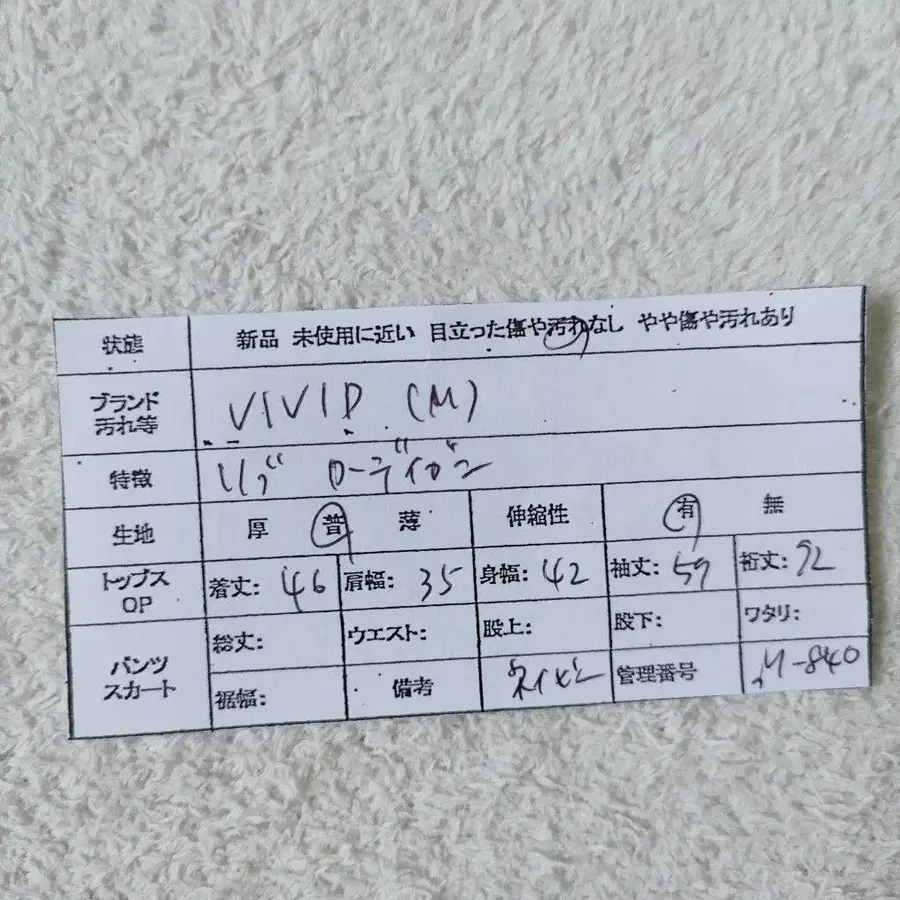 状態 新品 未使用に近い 目立った傷や汚れなし やや傷や汚れあり
ブランド
汚れ等 VIVID (M)
特徴 リブ
生地 厚 普 薄 伸縮性 有 無
トップス
OP 着丈: 46 肩幅: 35 身幅: 42 袖丈: 59 裄丈:
パンツ
スカート 総丈: ウエスト: 股上: 股下: ワタリ:
裾幅: 備考 管理番号 M-840